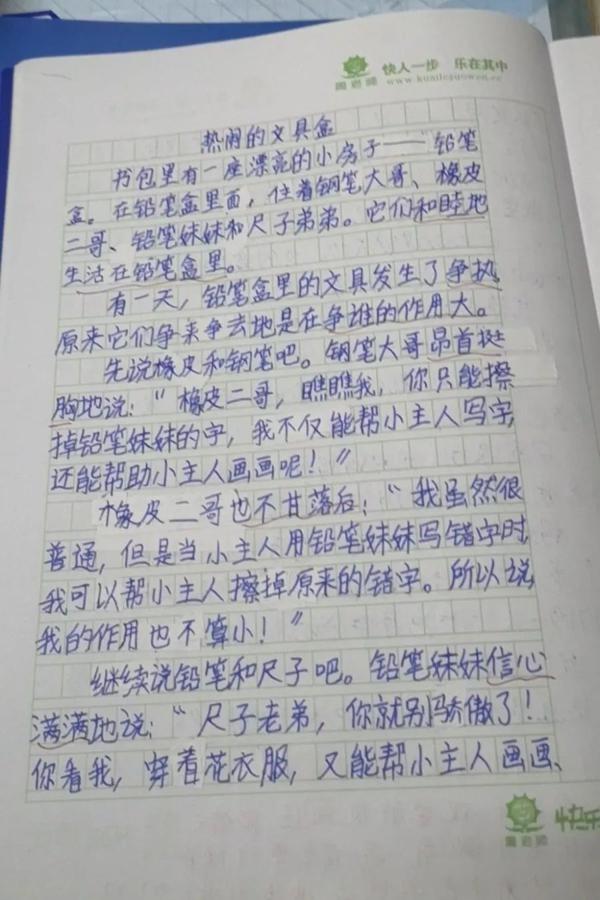 快人一步 乐在其中
热闹的文具盒
书包里有一座漂亮的小房子——铅笔
盒。在铅笔盒里面，住着钢笔大哥、橡皮
二哥、铅笔妹妹和尺子弟弟。它们和睦地
生活在铅笔盒里。
有一天，铅笔盒里的文具发生了争执，
原来它们争来争去地是在争谁的作用大。
先说橡皮和钢笔吧。钢笔大哥昂首挺
胸地说：“橡皮二哥，瞧瞧我，你只能擦
掉铅笔妹妹的字，我不仅能帮小主人写字，
还能帮助小主人画画呢！”
橡皮二哥也不甘落后：“我虽然很
普通，但是当小主人用铅笔妹妹写错字时，
我可以帮小主人擦掉原来的错字。所以说，
我的作用也不算小！”
继续说铅笔和尺子吧。铅笔妹妹信心
满满地说：“尺子老弟，你就别骄傲了！
你看我，穿着花衣服，又能帮小主人画画、
快乐